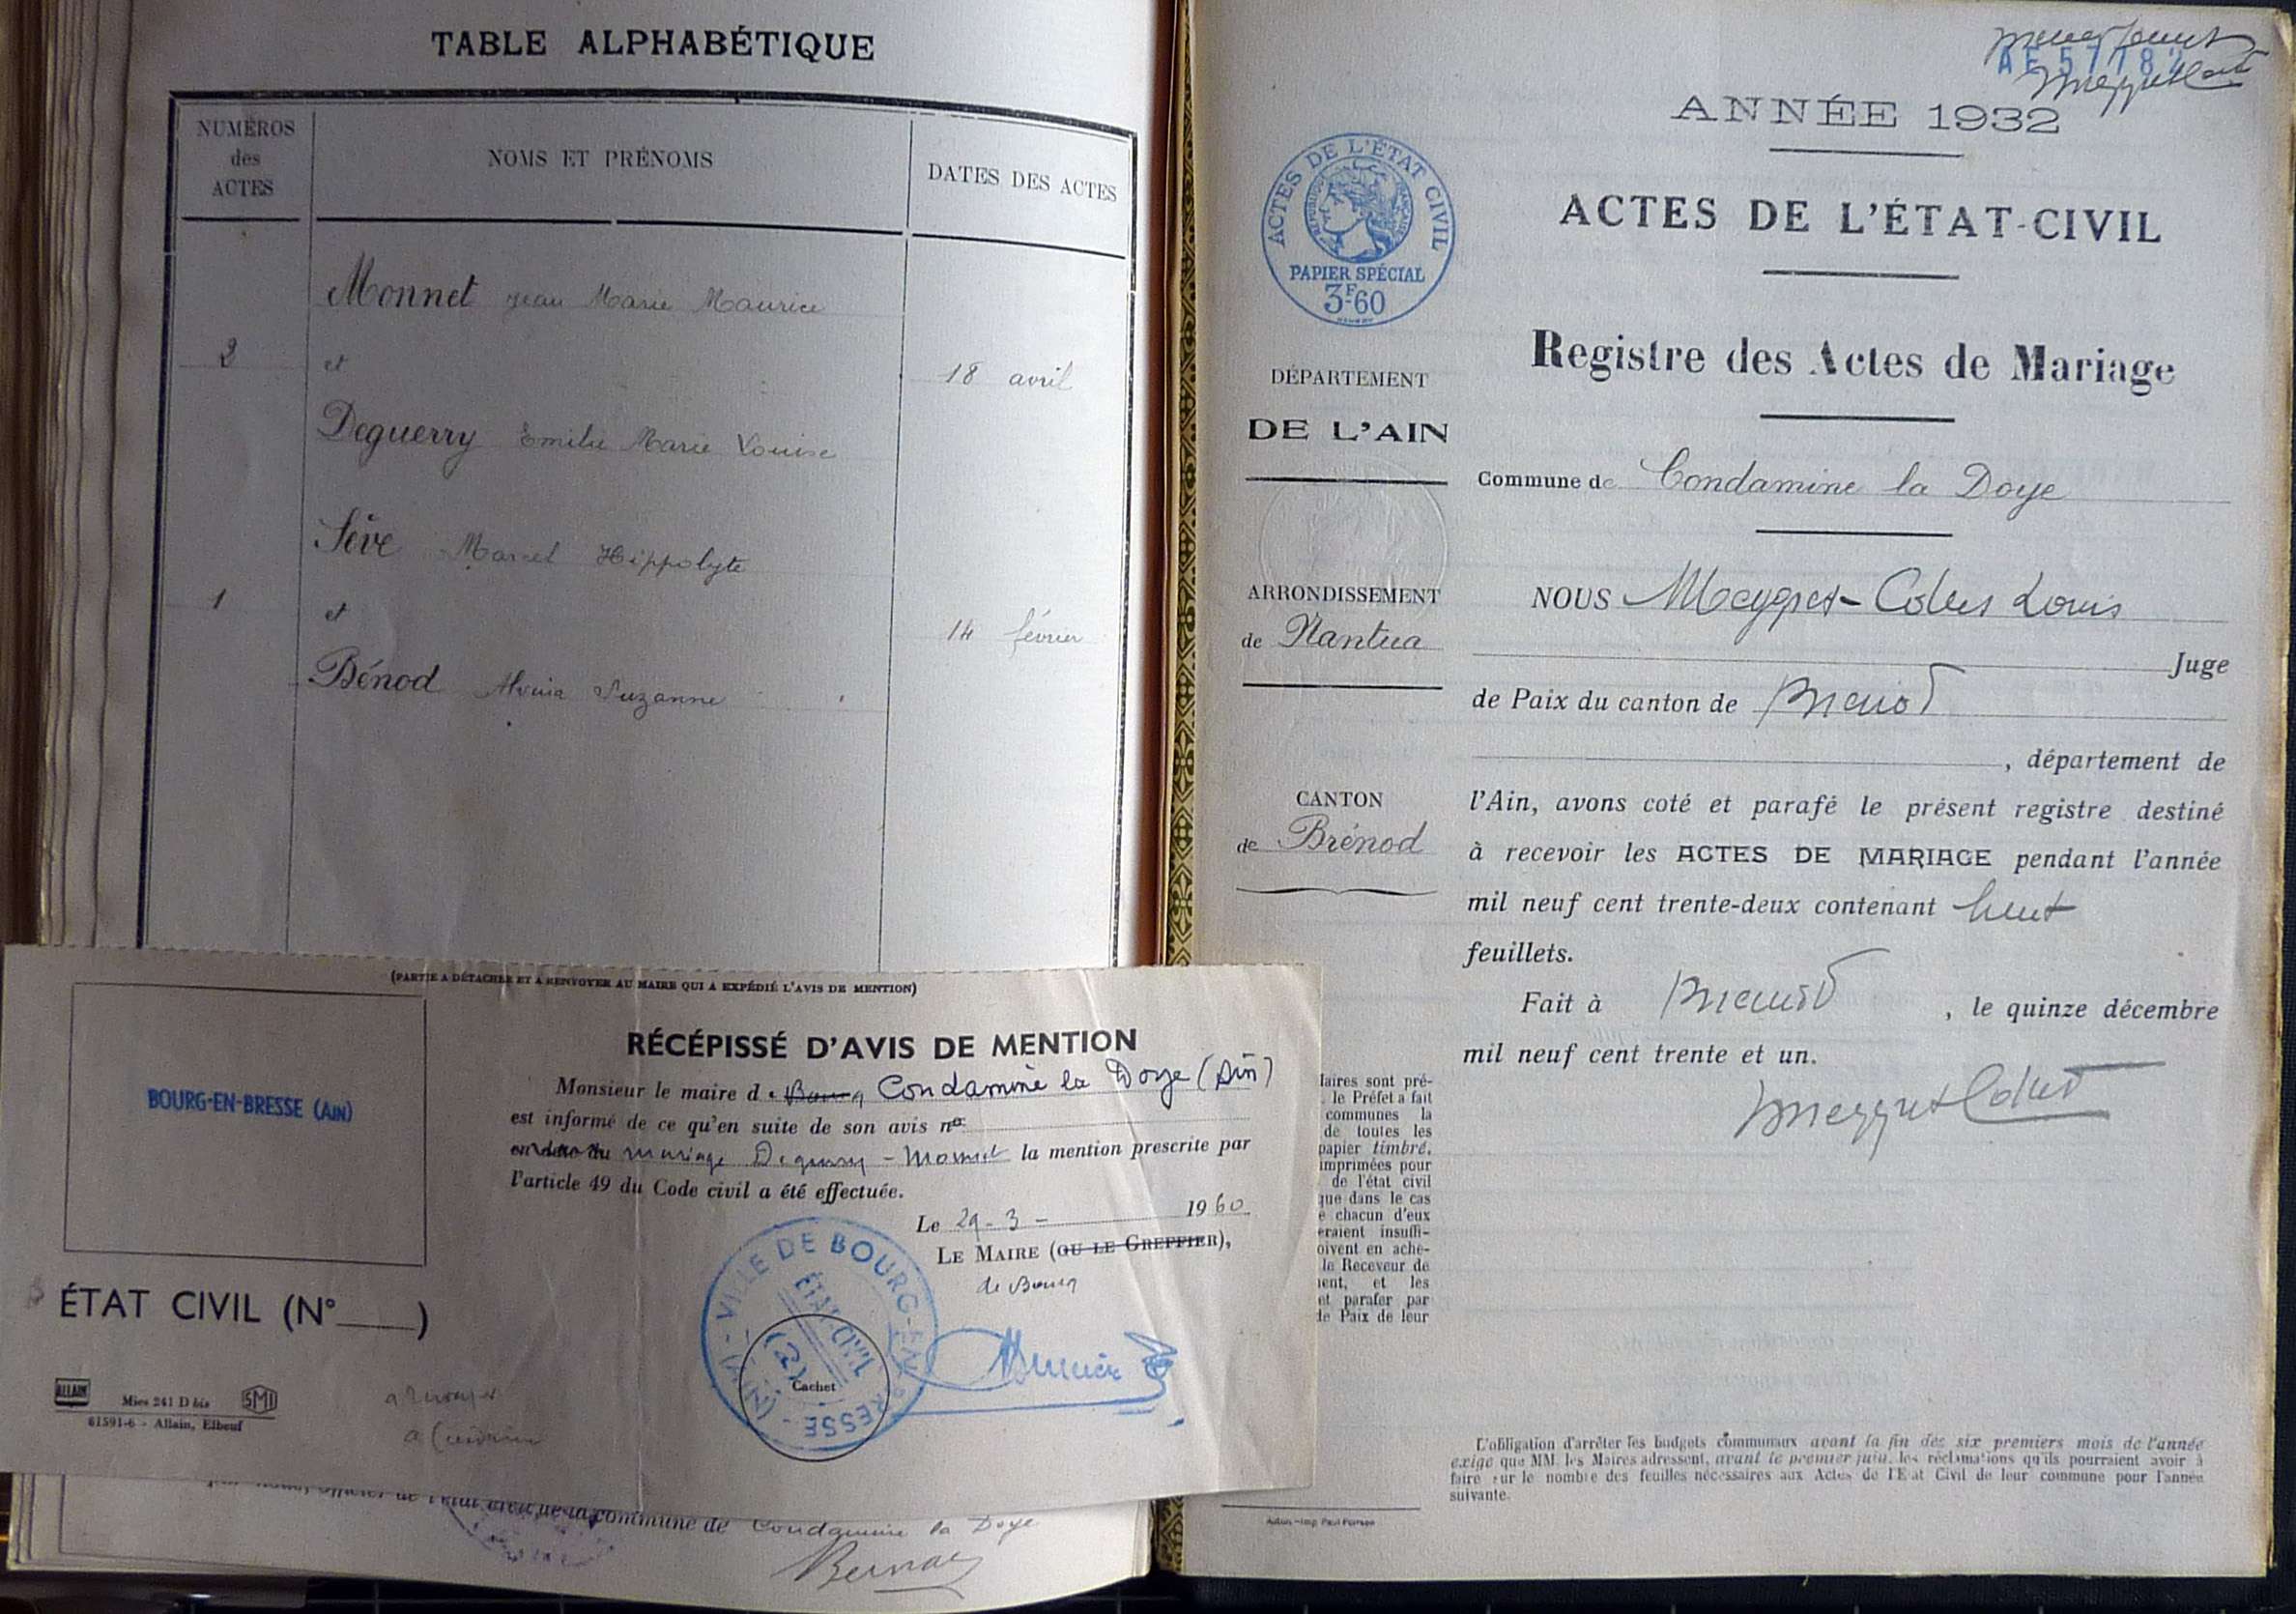 TABLE ALPHABÉTIQUE
NUMÉROS
des
ACTES
NOMS ET PRÉNOMS
DATES DES ACTES
Monnet Jean Marie Maurice
2 et 18 avril
Deguerry Emilie Marie Louise
Sève Marcel Hippolyte
1 et 14 février
Bénod Suzanne
(PARTIE A DÉTACHER ET A RENVOYER AU MAIRE QUI A EXPÉDIÉ L'AVIS DE MENTION)
RÉCÉPISSÉ D'AVIS DE MENTION
BOURG-EN-BRESSE (AIN)
Monsieur le maire d e Bourg Condamine la Doye (Ain)
est informé de ce qu'en suite de son avis nº
en date du mariage Deguerry - Monnet la mention prescrite par
l'article 49 du Code civil a été effectuée.
Le 29-3- 1960
LE MAIRE (OU LE GREFFIER),
de Bourg
ÉTAT CIVIL (N° )
VILLE DE BOURG-EN-BRESSE (AIN)
ÉTAT CIVIL
(2)
Cachet
ALLAIN
Mies 241 D bis
SMI
61591-6 - Allain, Elbeuf
officier de l'état civil de la commune de Condamine la Doye
AE 57182
ANNÉE 1932
ACTES DE L'ÉTAT CIVIL
RÉPUBLIQUE FRANÇAISE
PAPIER SPÉCIAL
3F60
ACTES DE L'ÉTAT-CIVIL
Registre des Actes de Mariage
DÉPARTEMENT
DE L'AIN
Commune de Condamine la Doye
ARRONDISSEMENT
de Nantua
NOUS Meygret-Collet Louis
Juge
de Paix du canton de Brénod
, département de
CANTON
de Brénod
l'Ain, avons coté et parafé le présent registre destiné
à recevoir les ACTES DE MARIAGE pendant l'année
mil neuf cent trente-deux contenant huit
feuillets.
Fait à Brénod , le quinze décembre
mil neuf cent trente et un.
Meygret Collet
laires sont pré-
le Préfet a fait
communes la
de toutes les
papier timbré.
imprimées pour
de l'état civil
que dans le cas
e chacun d'eux
eraient insuffi-
oivent en ache-
le Receveur de
ient, et les
et parafer par
de Paix de leur
L'obligation d'arrêter les budgets communaux avant la fin des six premiers mois de l'année
exige que MM. les Maires adressent, avant le premier juin, les réclamations qu'ils pourraient avoir à
faire sur le nombre des feuilles nécessaires aux Actes de l'Etat Civil de leur commune pour l'année
suivante.